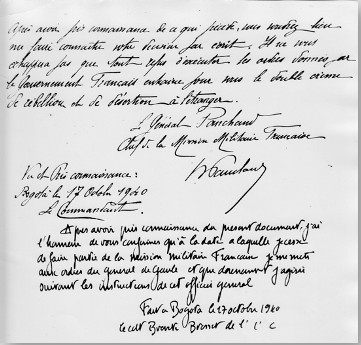 Après avoir pris connaissance de ce qui précède, vous voudrez bien
me faire connaître votre décision par écrit. Il ne vous
échappera pas que tout refus d'exécuter les ordres donnés par
le Gouvernement Français entraîne pour vous le double crime
de rébellion et de désertion à l'étranger.
Le Général Fauchand
Chef de la Mission Militaire Française
Vu et Pris connaissance:
Bogotá le 17 Octobre 1940
Le Commandant.
Après avoir pris connaissance du present document, j'ai
l'honneur de vous confirmer qu'à la date a laquelle je cesse
de faire partie de la mission militaire Française je me mets
aux ordres du general de Gaulle et que dorenavant j'agirai
suivant les instructions de cet officier general
Fait a Bogota le 17 octobre 1940
le cdt